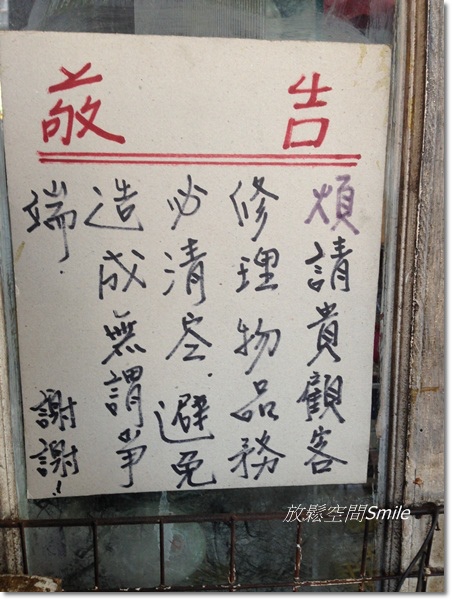 敬告
煩請貴顧客
修理物品務
必清空.避免
造成無謂爭
端.謝謝!
放鬆空間Smile